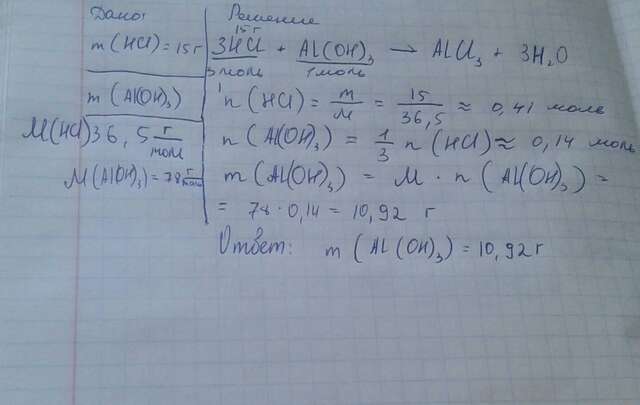 Дано:
m(HCl)=15г
m(Al(OH)₃)
M(HCl)36,5 г/моль
M(Al(OH)₃)=78 г/моль
Решение
15г
3HCl + Al(OH)₃ → AlCl₃ + 3H₂O
3моль 1моль
n(HCl) = m/M = 15/36,5 ≈ 0,41 моль
n(Al(OH)₃) = 1/3 n(HCl) ≈ 0,14 моль
m(Al(OH)₃) = M · n(Al(OH)₃) =
= 78 · 0,14 = 10,92 г
Ответ: m(Al(OH)₃) = 10,92г